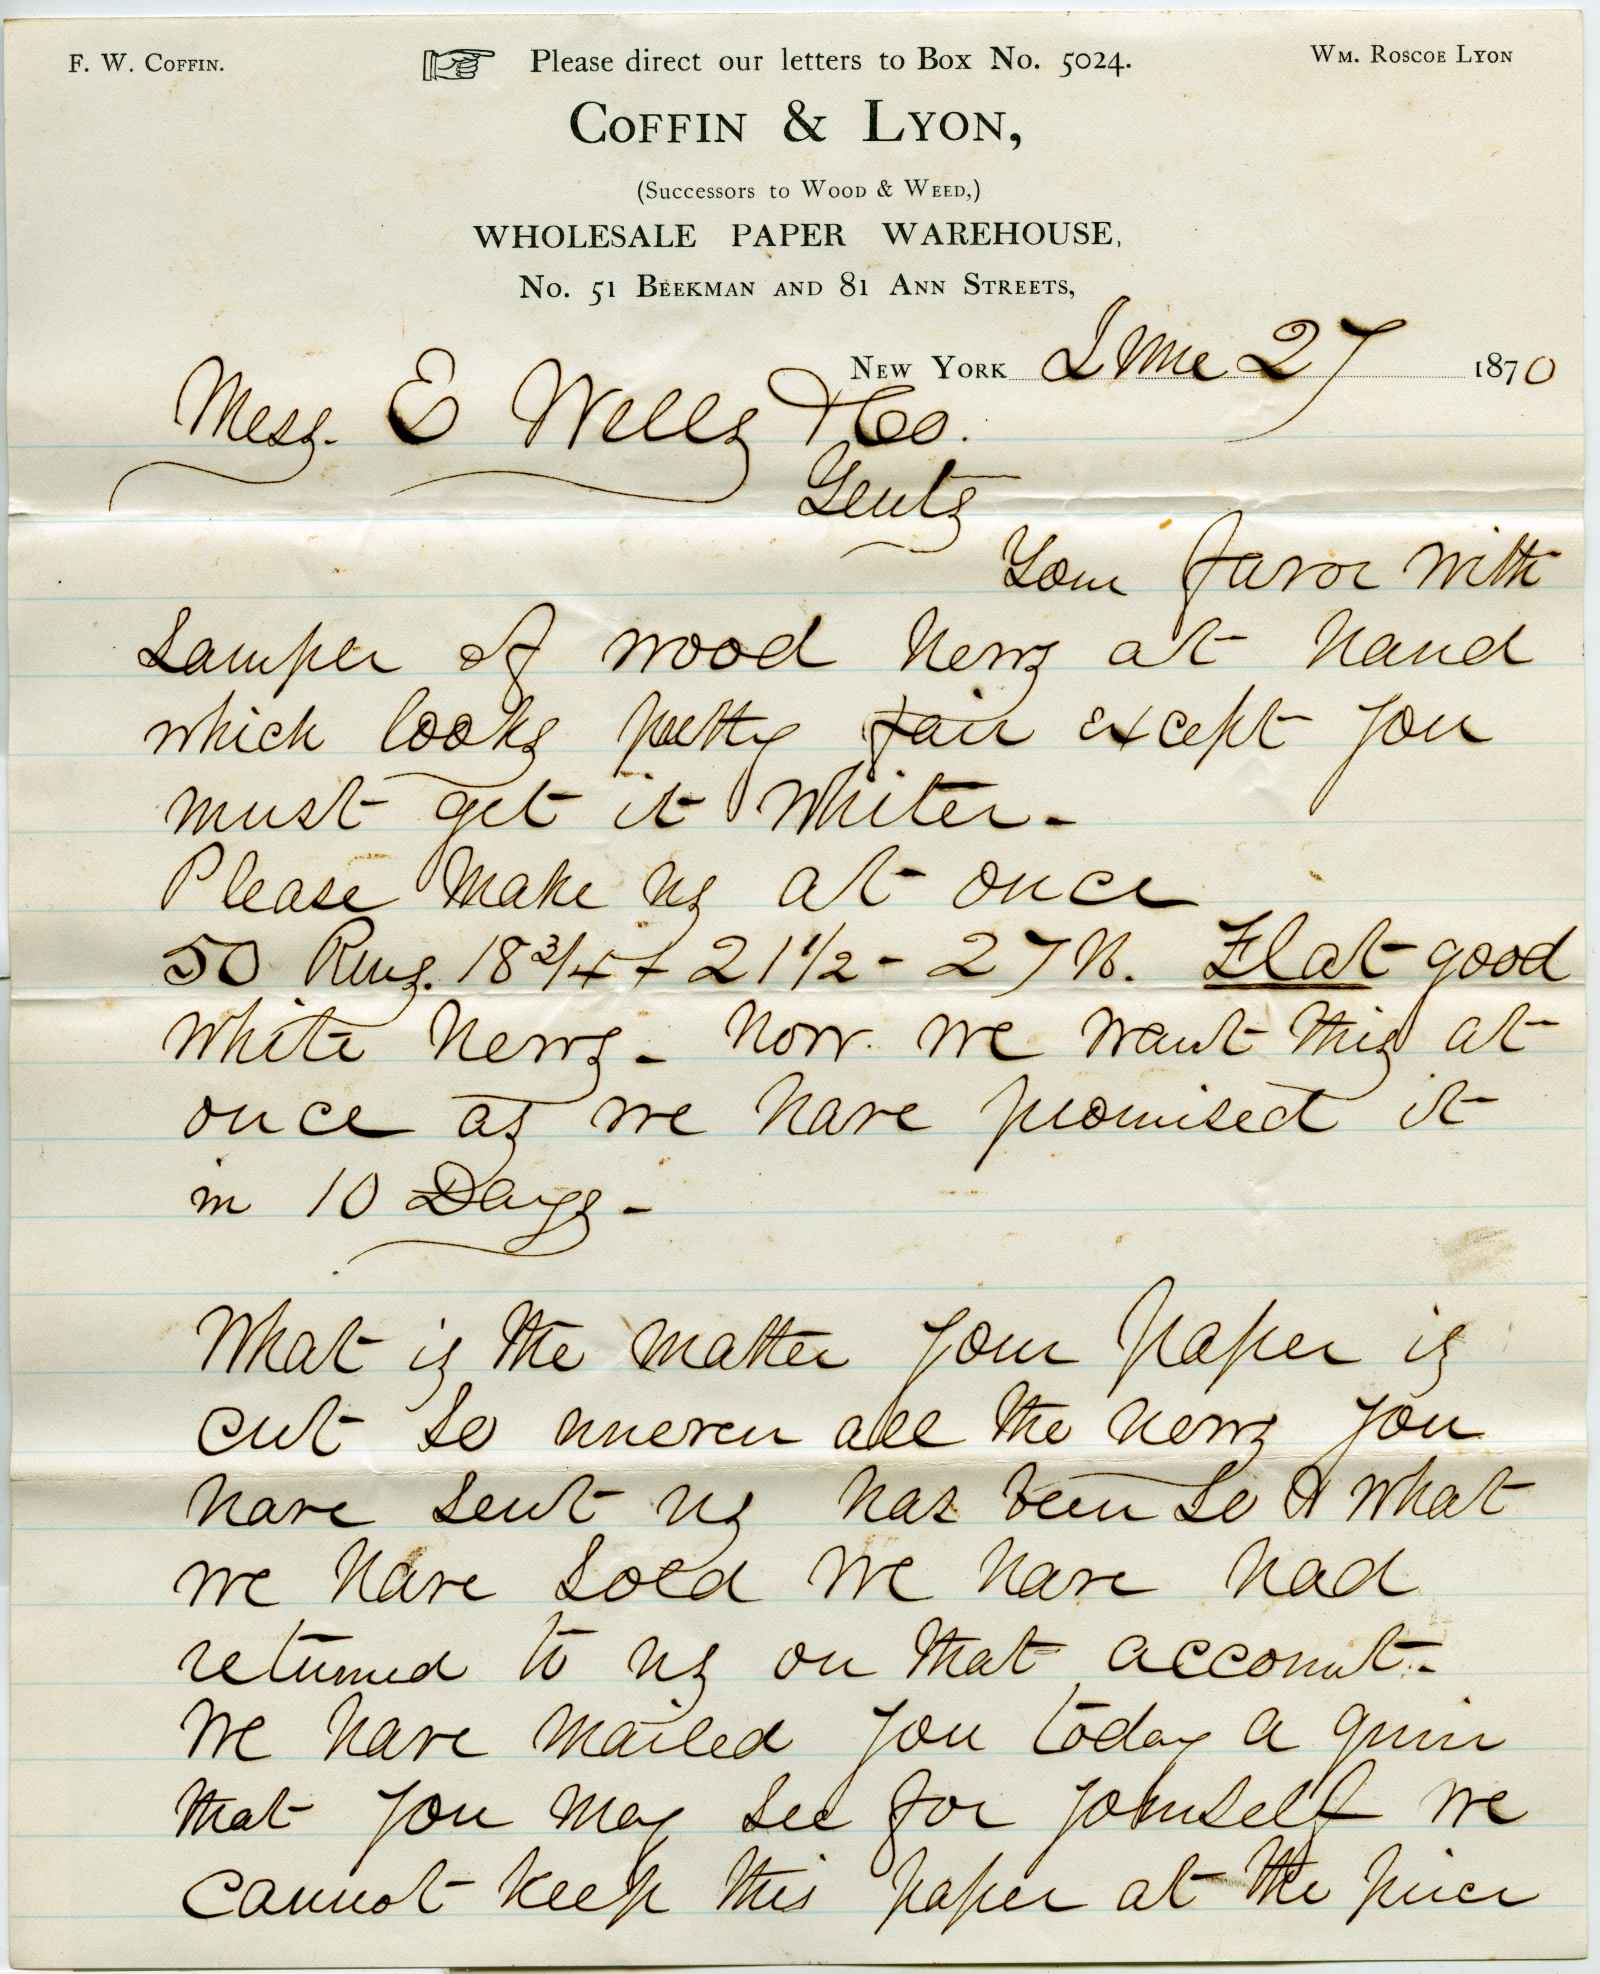 F. W. COFFIN.
Please direct our letters to Box No. 5024.
WM. ROSCOE LYON
COFFIN & LYON,
(Successors to WOOD & WEED,)
WHOLESALE PAPER WAREHOUSE,
No. 51 BEEKMAN AND 81 ANN STREETS,
NEW YORK June 27 1870
Mess. E Wells & Co.
Gents
Your favor with
samples of wood News at hand
which looks pretty fair except you
must get it whiter -
Please make us at once
50 Rms. 18 3/4 + 21 1/2 - 27 lb. Flat good
white News - Now we want this at
once as we have promised it
in 10 Days -
What is the matter your paper is
cut so uneven all the news you
have sent us has been so & what
we have sold we have had
returned to us on that account -
We have mailed you today a quire
that you may see for yourself we
cannot keep this paper at the price